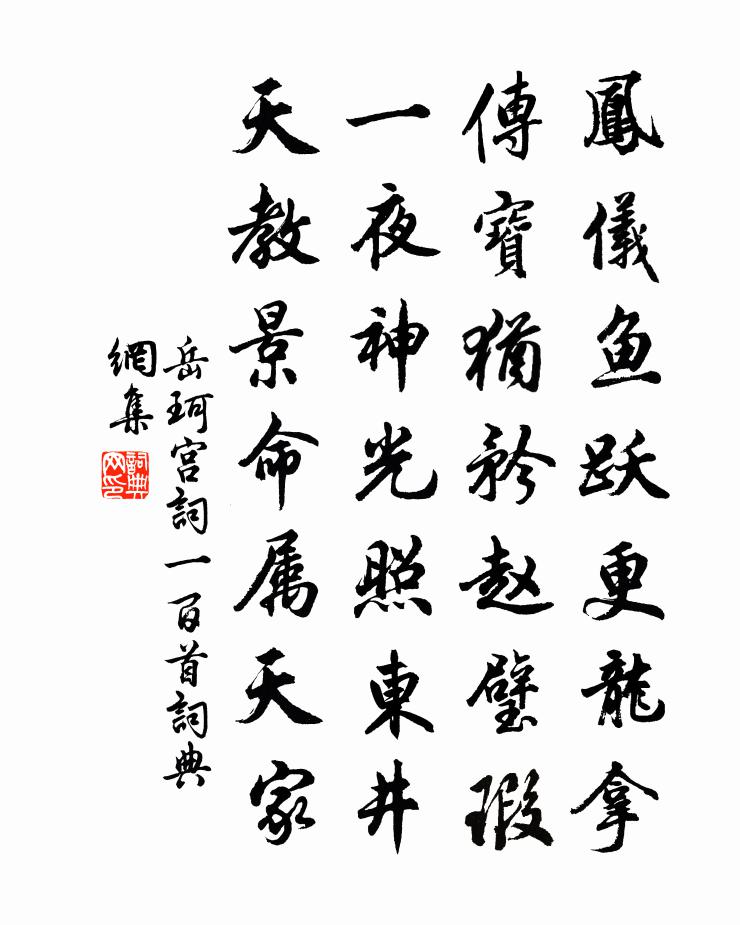 鳳儀鱼跃更龍拿
傳寶猶矜赵璧瑕
一夜神光照東井
天教景命属天家
岳珂宫詞一百首詞典
網集
詞典网印